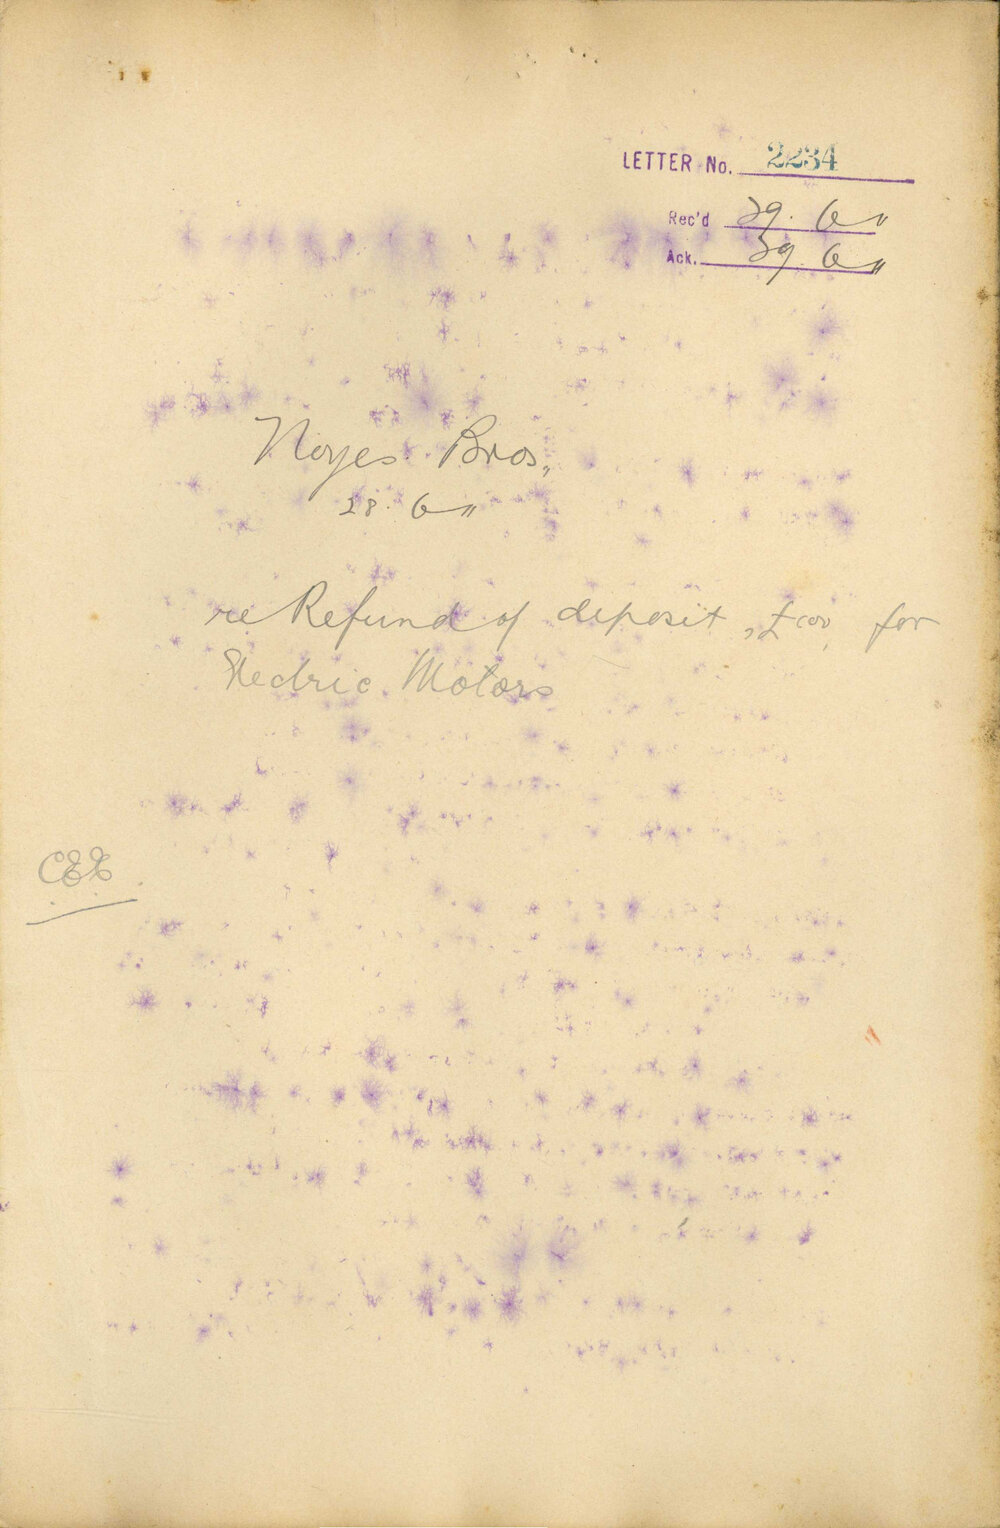 LETTER No. 2234
Rec'd 29. 6 "
Ack. 29. 6 "
Noyes Bros.,
28. 6 "
re Refund of deposit, £100, for
Electric Motors
CEE